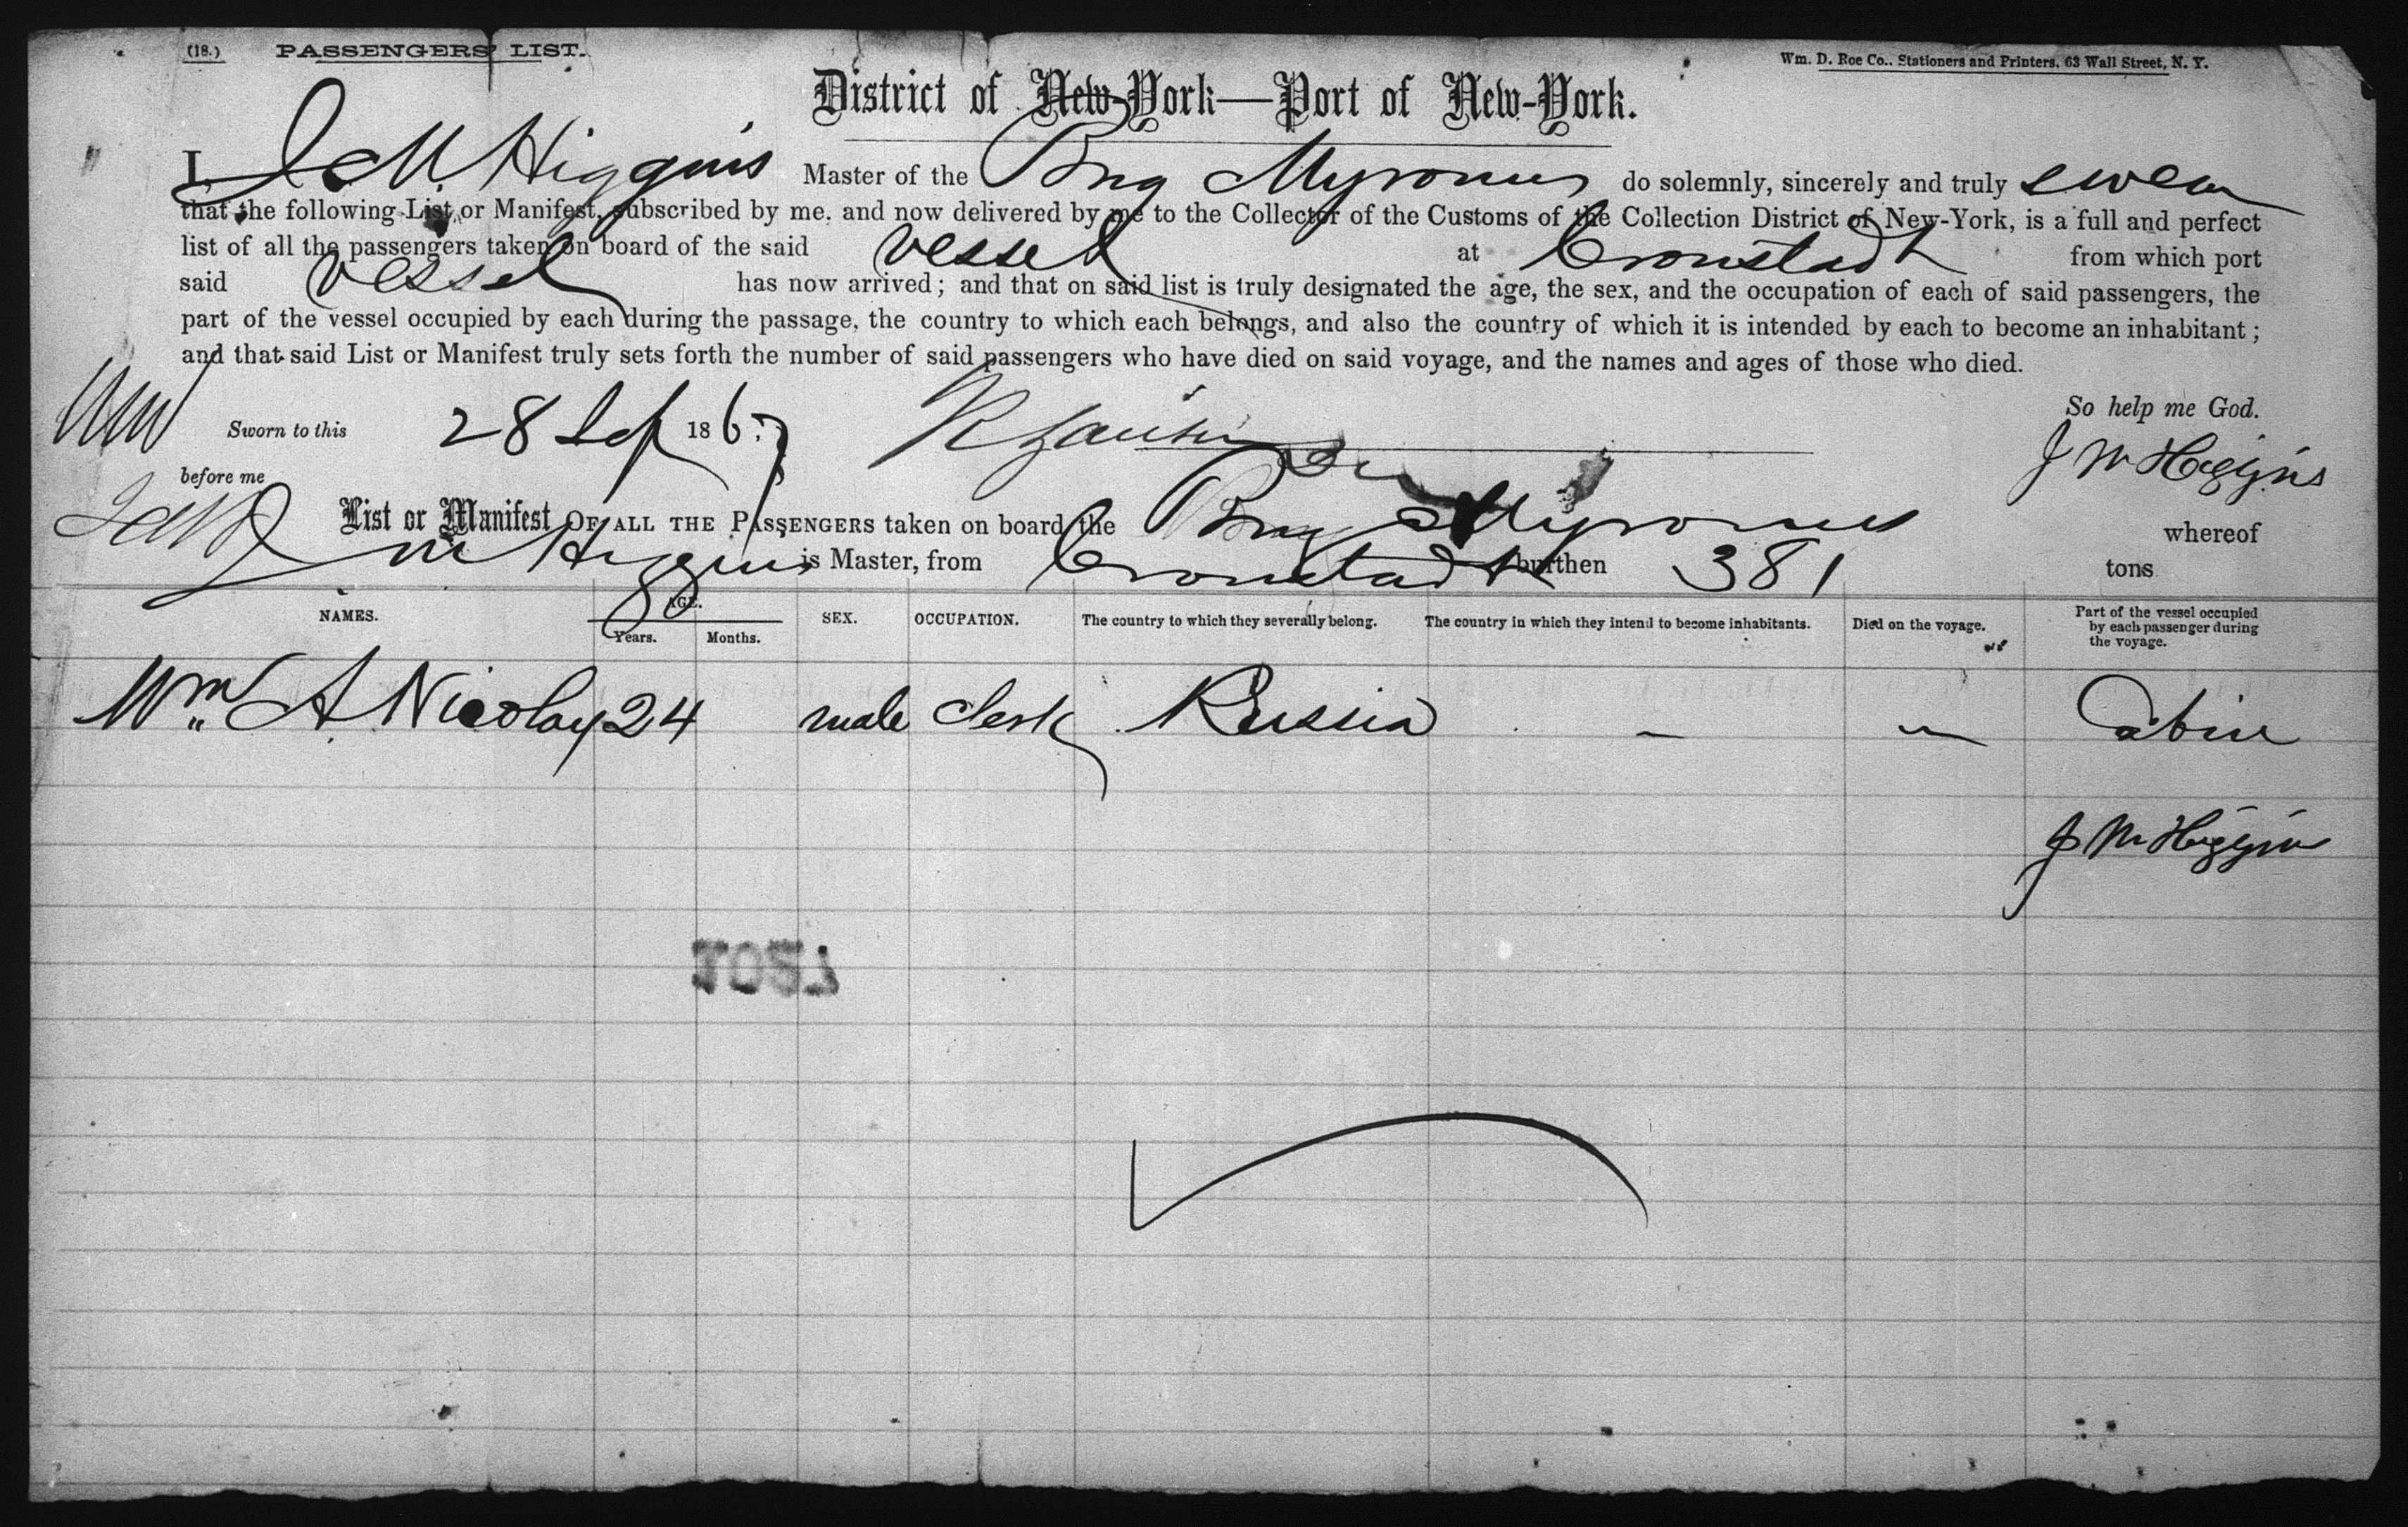 (18.) PASSENGERS' LIST.
Wm. D. Roe Co., Stationers and Printers, 63 Wall Street, N. Y.
District of New-York—Port of New-York.
I, J M Higgins Master of the Brig Myronus do solemnly, sincerely and truly swear
that the following List or Manifest, subscribed by me, and now delivered by me to the Collector of the Customs of the Collection District of New-York, is a full and perfect
list of all the passengers taken on board of the said vessel at Cronstadt from which port
said vessel has now arrived; and that on said list is truly designated the age, the sex, and the occupation of each of said passengers, the
part of the vessel occupied by each during the passage, the country to which each belongs, and also the country of which it is intended by each to become an inhabitant;
and that said List or Manifest truly sets forth the number of said passengers who have died on said voyage, and the names and ages of those who died.
So help me God.
Sworn to this 28 Sep 1867
J M Higgins
before me
List or Manifest OF ALL THE PASSENGERS taken on board the Brig Myronus whereof
J M Higgins is Master, from Cronstadt burthen 381 tons
NAMES. AGE. Years. Months. SEX. OCCUPATION. The country to which they severally belong. The country in which they intend to become inhabitants. Died on the voyage. Part of the vessel occupied by each passenger during the voyage.
Wm A. Nicolay 24 male clerk Russia - - Cabin
J M Higgins